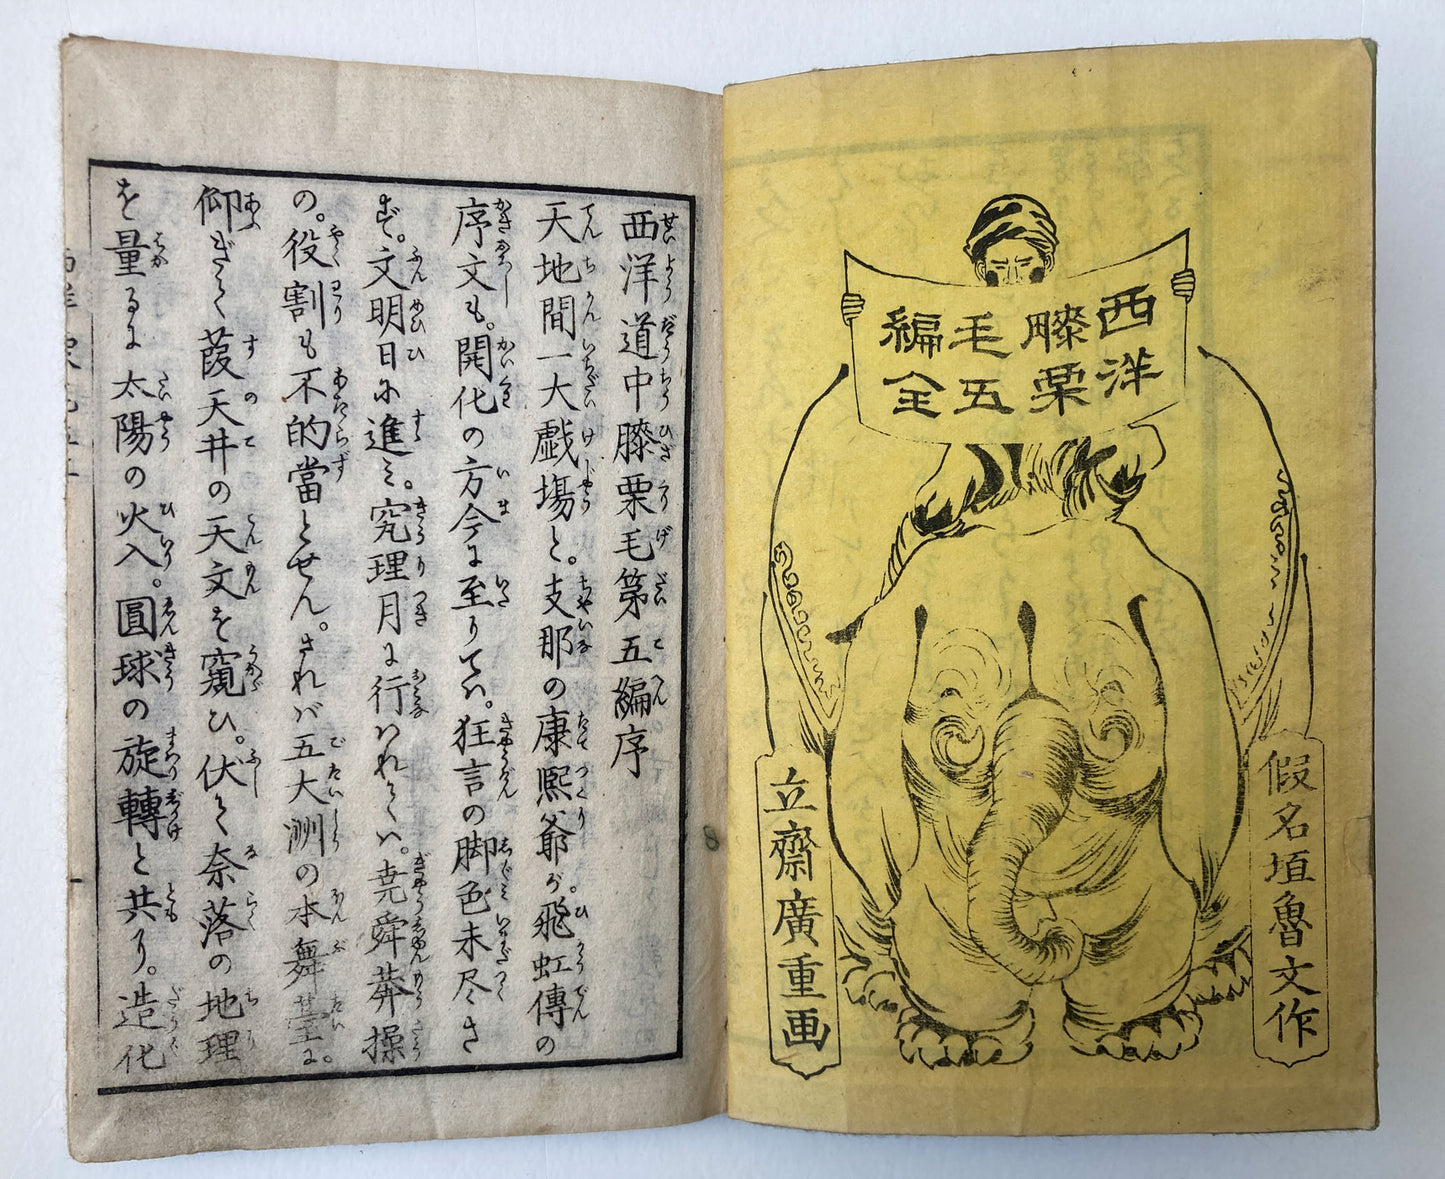 西洋
膝栗
毛五
編全
假名垣魯文作
立齋廣重画
西洋道中膝栗毛第五編序
天地間一大戯場と。支那の康熙爺が飛虹傳の
序文も。開化の方今に至りては。狂言の脚色未尽さ
ず。文明日に進み。究理月に行はれては。堯舜莽操
の。役割も不的當とせん。されば五大洲の本舞薹に。
仰ぎて葭天井の天文を窺ひ。伏て奈落の地理
を量るに太陽の火入。圓球の旋轉と共り。造化